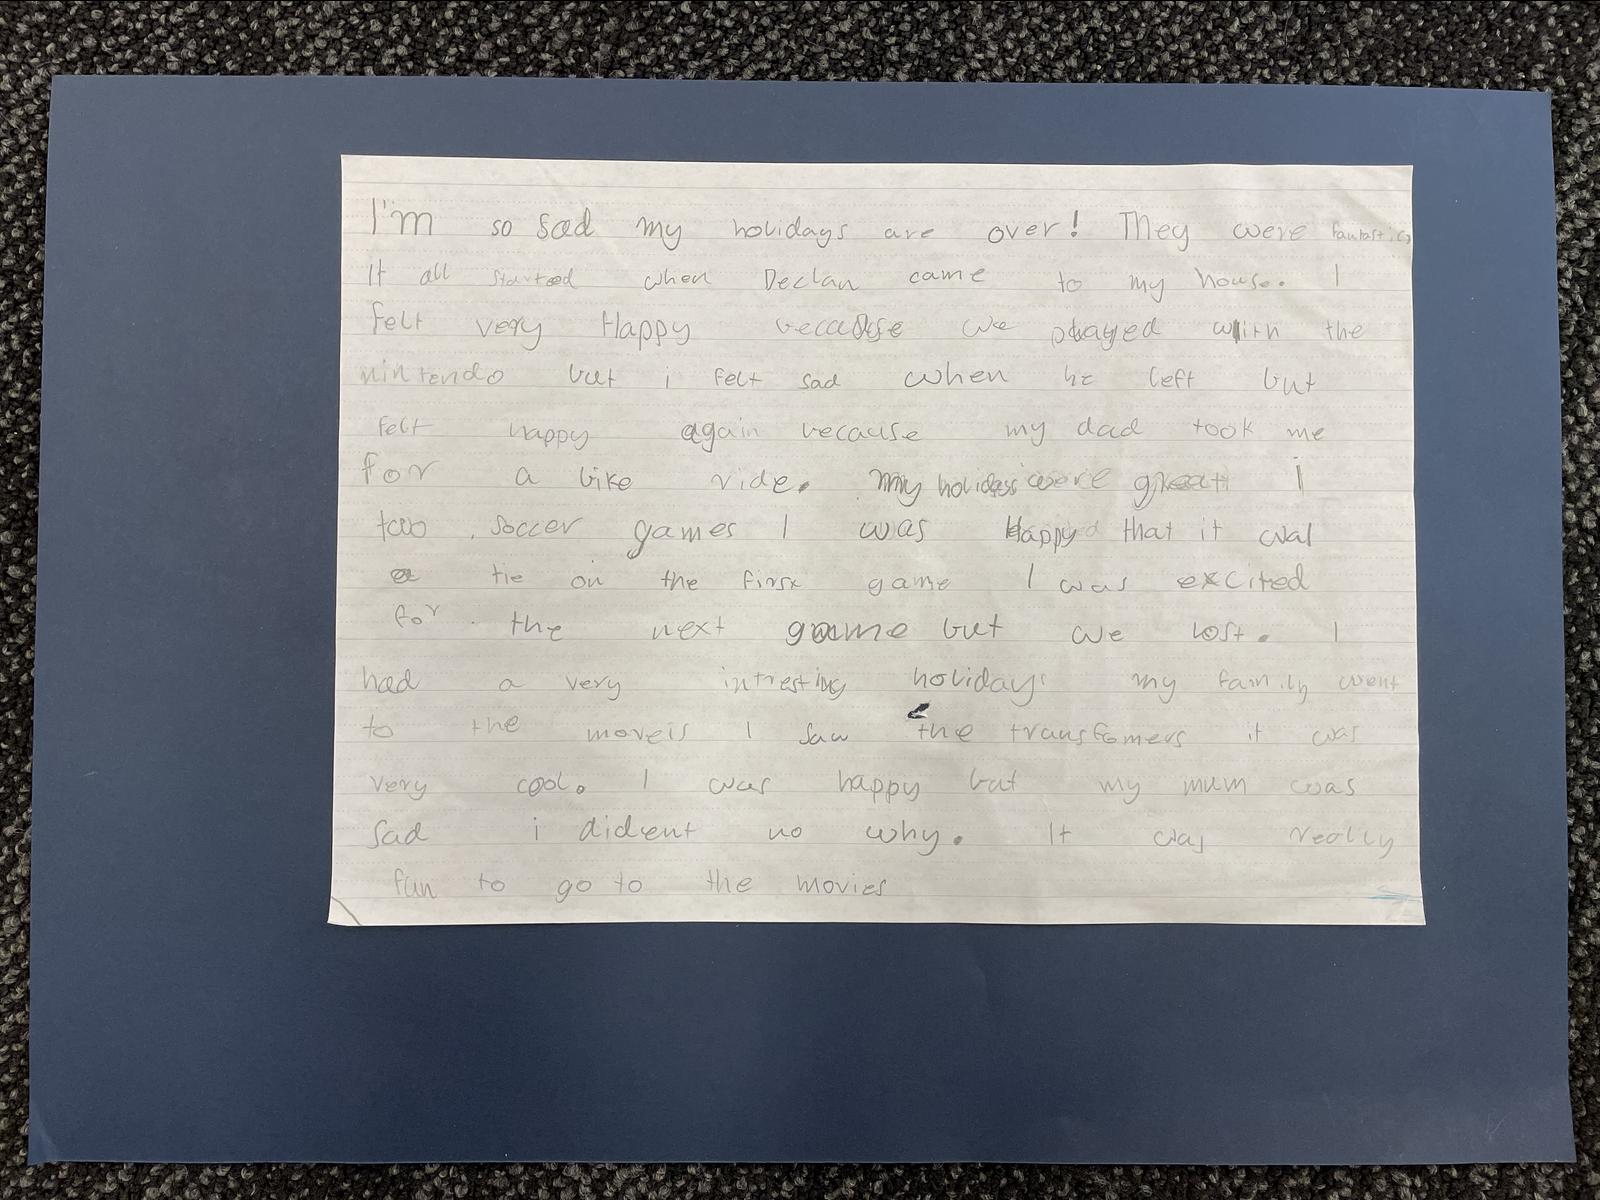 I'm so sad my holidays are over! They were fantastic
It all started when Declan came to my house. I
felt very Happy because we played with the
nintendo but i felt sad when he left but
felt happy again because my dad took me
for a bike ride. my holidays were great I
two soccer games I was Happy that it was
a tie on the first game I was excited
for the next game but we lost. I
had a very intresting holidays my family went
to the moveis I saw the transfomers it was
very cool. I was happy but my mum was
sad i dident no why. It was really
fun to go to the movies